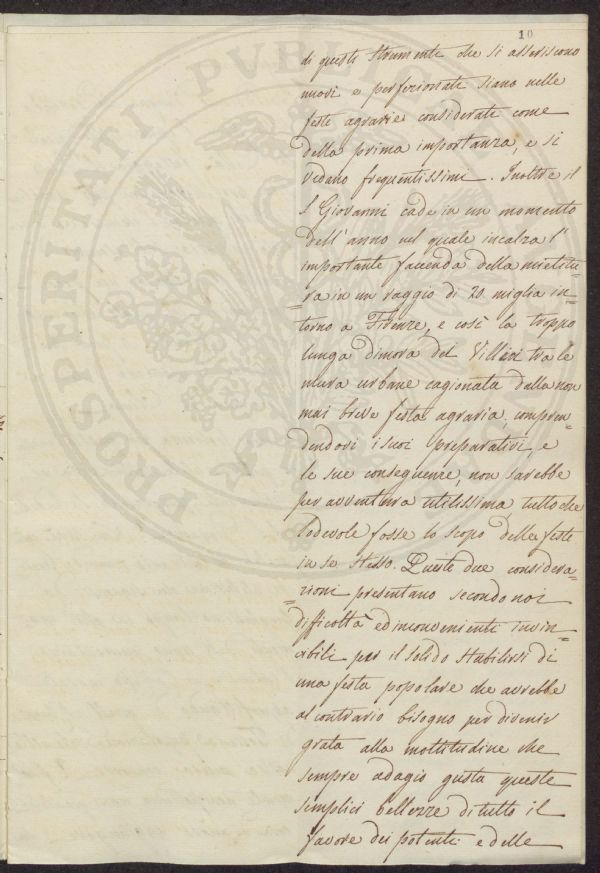 10
di questi strumenti che si asseriscono
nuovi e perfezionati siano nelle
feste agrarie considerate come
della prima importanza, e si
vedano frequentissimi. Inoltre il
S. Giovanni cade in un momento
dell'anno nel quale incalza l'
importante faccenda della mietitu=
ra in un raggio di 20 miglia in=
torno a Firenze, e così la troppo
lunga dimora dei Villici tra le
mura urbane cagionata dalla non
mai breve festa agraria, compren=
dendovi i suoi preparativi, e
le sue conseguenze, non sarebbe
per avventura utilissima, tuttoche
lodevole fosse lo scopo delle feste
in se stesso. Queste due considera=
=zioni presentano secondo noi
difficoltà ed inconvenienti invin=
=cibili per il solido stabilirsi di
una festa popolare che avrebbe
al contrario bisogno per divenir
grata alla moltitudine che
sempre adagio gusta queste
semplici bellezze di tutto il
favore dei potenti e delle
PROSPERITATI PVBLI